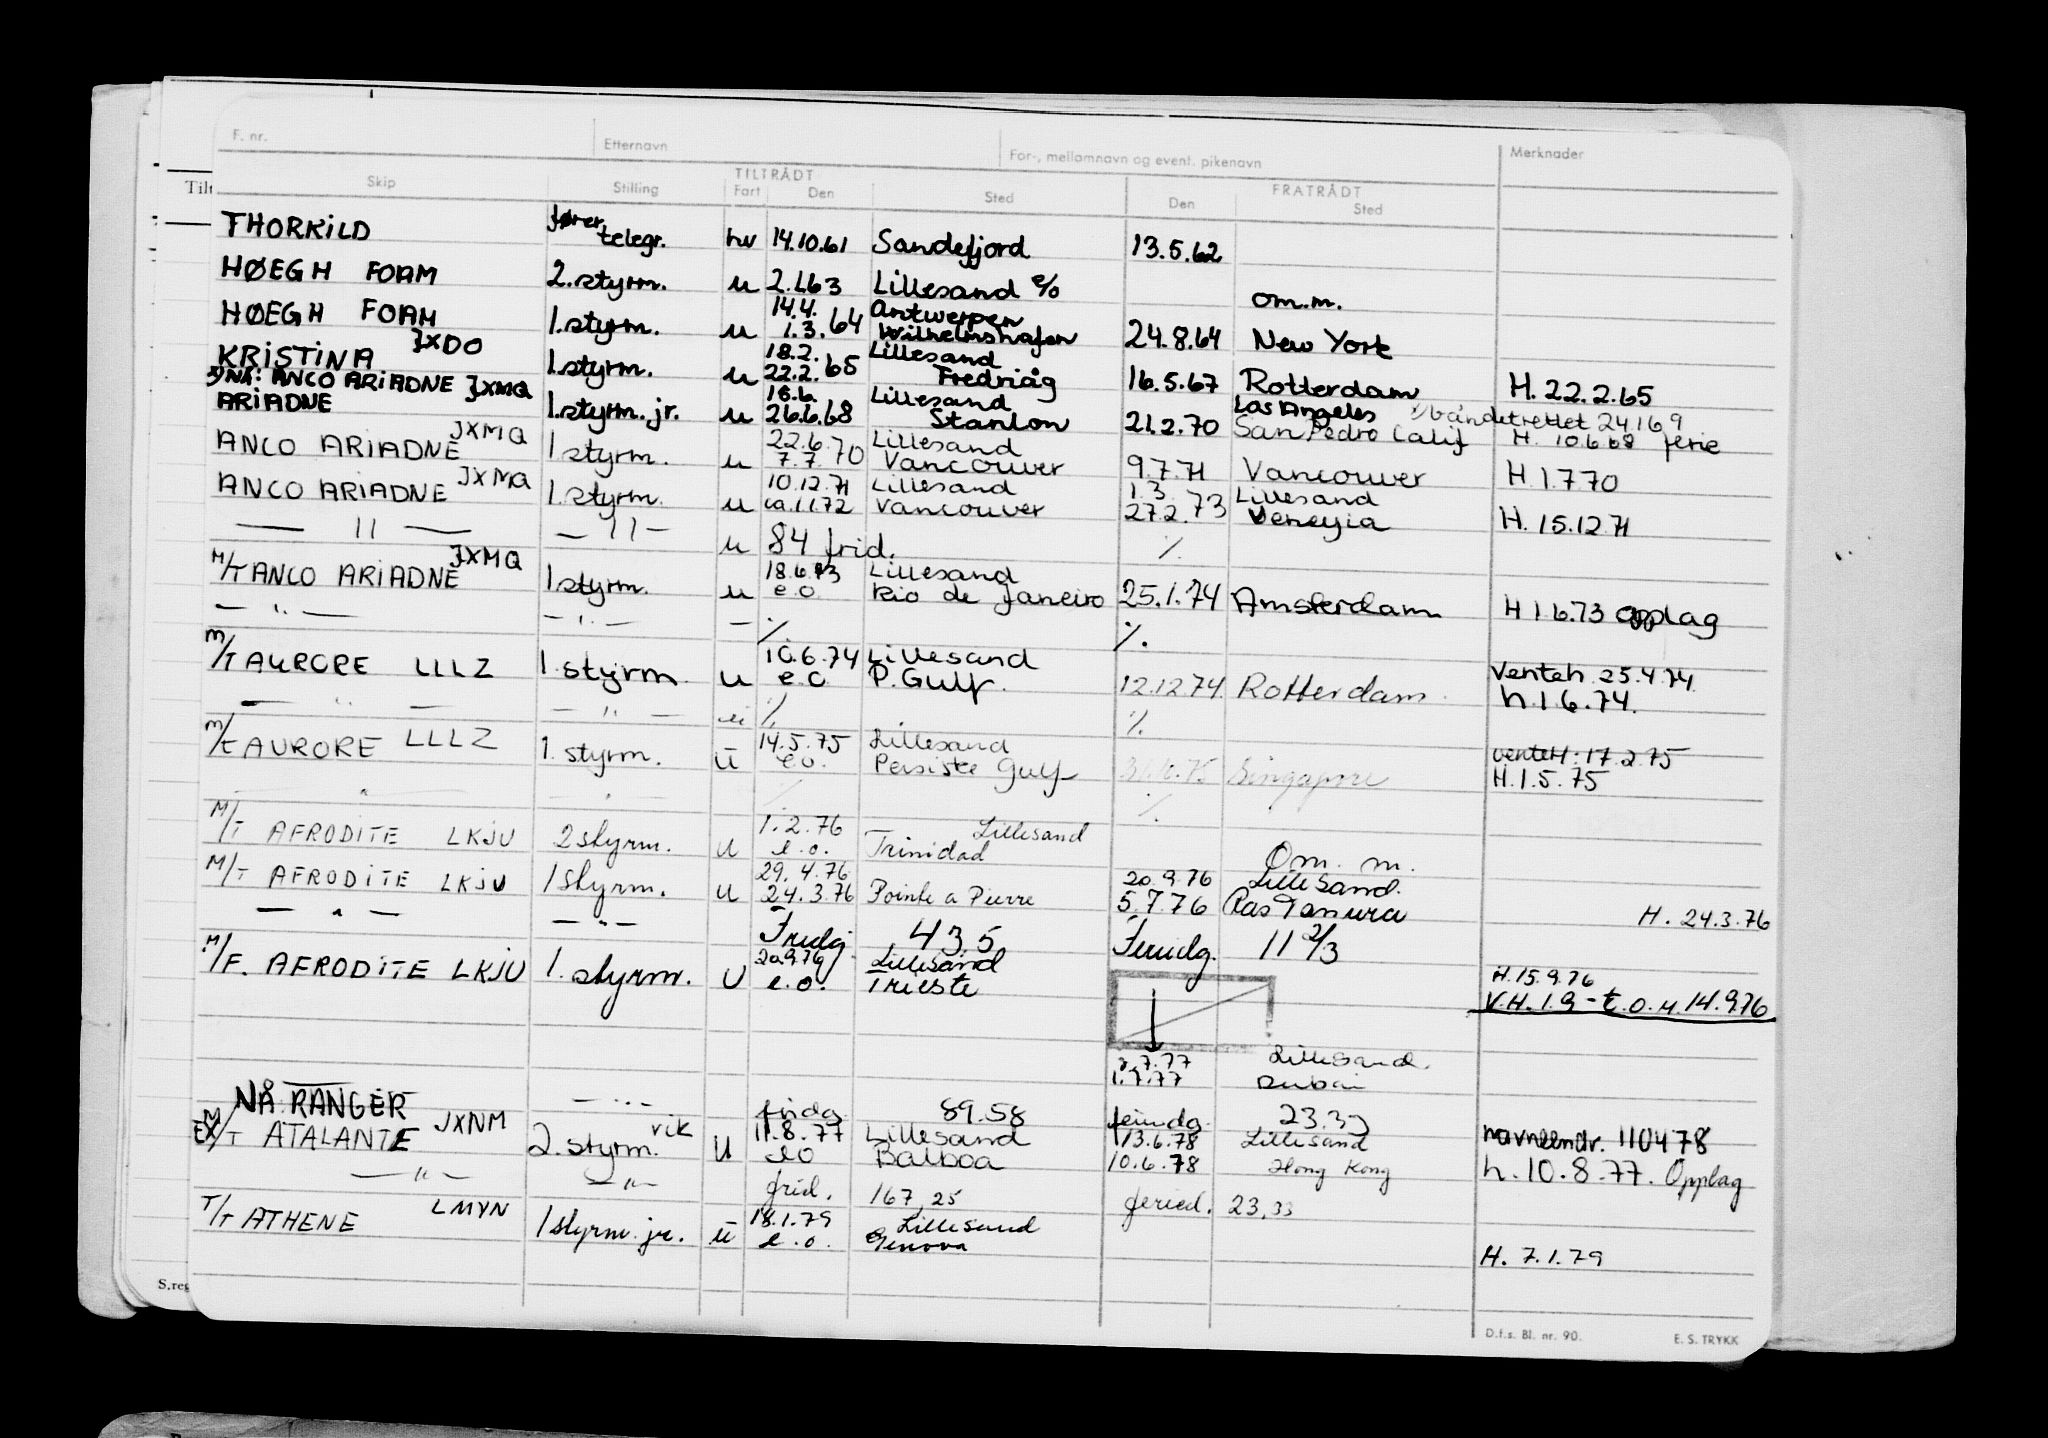 F. nr. Etternavn For-, mellomnavn og event. pikenavn Merknader
Skip Stilling TILTRÅDT Fart Den Sted FRATRÅDT Den Sted
THORKILD fører telegr. hv 14.10.61 Sandefjord 13.5.62
HØEGH FOAM 2.styrm. u 2.1.63 Lillesand e/o om.m.
HØEGH FOAM 1.styrm. u 14.4. 1.3. 64 Antwerpen Wilhelmshafen 24.8.64 New York
JXDO
KRISTINA 1.styrm. u 18.2. 22.2. 65 Lillesand 16.5.67 Rotterdam H. 22.2.65
NÅ: ANCO ARIADNE JXMQ
ARIADNE 1.styrm. jr. u 26.6.68 Lillesand Stanlon 21.2.70 Los Angeles San Pedro Calif 24.1.69
H. 10.6.68 ferie
ANCO ARIADNE JXMQ 1 styrm. u 22.6. 7.7. 70 Lillesand Vancouver 9.7.71 Vancouver H 1.7.70
ANCO ARIADNE JXMQ 1.styrm. u 10.12.71 ca.1.1.72 Lillesand Vancouver 1.3. 27.2. 73 Lillesand Venezia H. 15.12.71
— 11 — — 11 — u 84 frid. %
M/T ANCO ARIADNE JXMQ 1styrm. u 18.6.73 e.o. Lillesand Rio de Janeiro 25.1.74 Amsterdam H 1.6.73 opplag
— " — — " — — % %.
M/T AURORE LLLZ 1.styrm. u 10.6.74 e.o Lillesand P.Gulf. 12.12.74. Rotterdam. Venteh. 25.4.74.
h.1.6.74.
— " — — " — u % %
M/T AURORE LLLZ 1. styrm. u 14.5.75 e.o. Lillesand Persiske Gulf Singapore venteH: 17.2.75
H.1.5.75
" " % %
M/T AFRODITE LKJU 2 styrm. u 1.2.76 e.o. Lillesand Trinidad Om. m.
M/T AFRODITE LKJU 1 styrm. u 29.4.76 24.3.76 Pointe a Pierre 20.9.76 Lillesand. 5.7.76 Ras Tanura H. 24.3.76
— " — — " — Fridg. 43,5 Feridg. 11 2/3
M/F. AFRODITE LKJU 1. styrm. U 20.9.76 e.o. Lillesand Trieste H. 15.9.76
V.H. 1.9 - t.o.m. 14.9.76
3.7.77 Lillesand.
1.7.77 Dubai
NÅ RANGER — " — fridg 89.58 feridg. 23.33
EX M/T ATALANTE JXNM 2.styrm. vik U 11.8.77 eo Lillesand Balboa 13.6.78 Lillesand 10.6.78 Hong Kong navneendr. 110478
h. 10.8.77. Opplag
— " — — " — frid. 167,25 feried. 23,33
T/T ATHENE LMYN 1styrm. jr. u 18.1.79 e.o. Lillesand Genova H. 7.1.79
S.reg
D.f.s. Bl. nr. 90. E. S. TRYKK